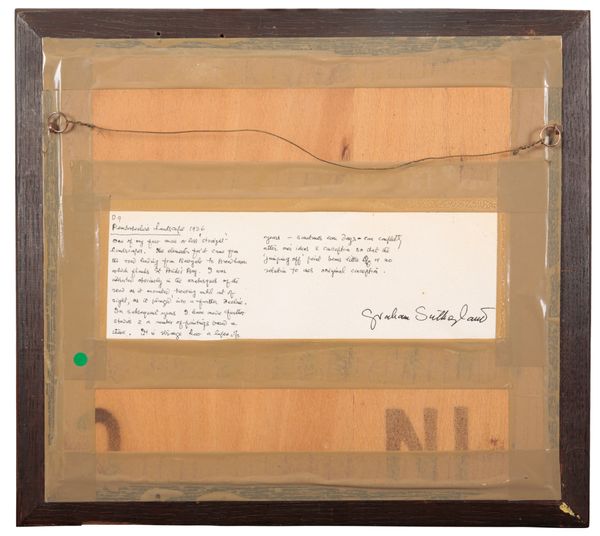 D9
Pembrokeshire Landscape 1936
One of my few more or less 'straight'
landscapes. The elements for it came from
the road leading from to
which St Brides Bay. I was
attracted obviously in the of the
road as it until out of
sight, as it plunged into a further decline.
In subsequent years I have made further
studies & a number of paintings based on
these. It is strange how a lapse of
years – sometimes even days – can completely
alter one's ideas & conception so that the
'jumping off' point bears little or no
relation to one's original conception.
Graham Sutherland
NI